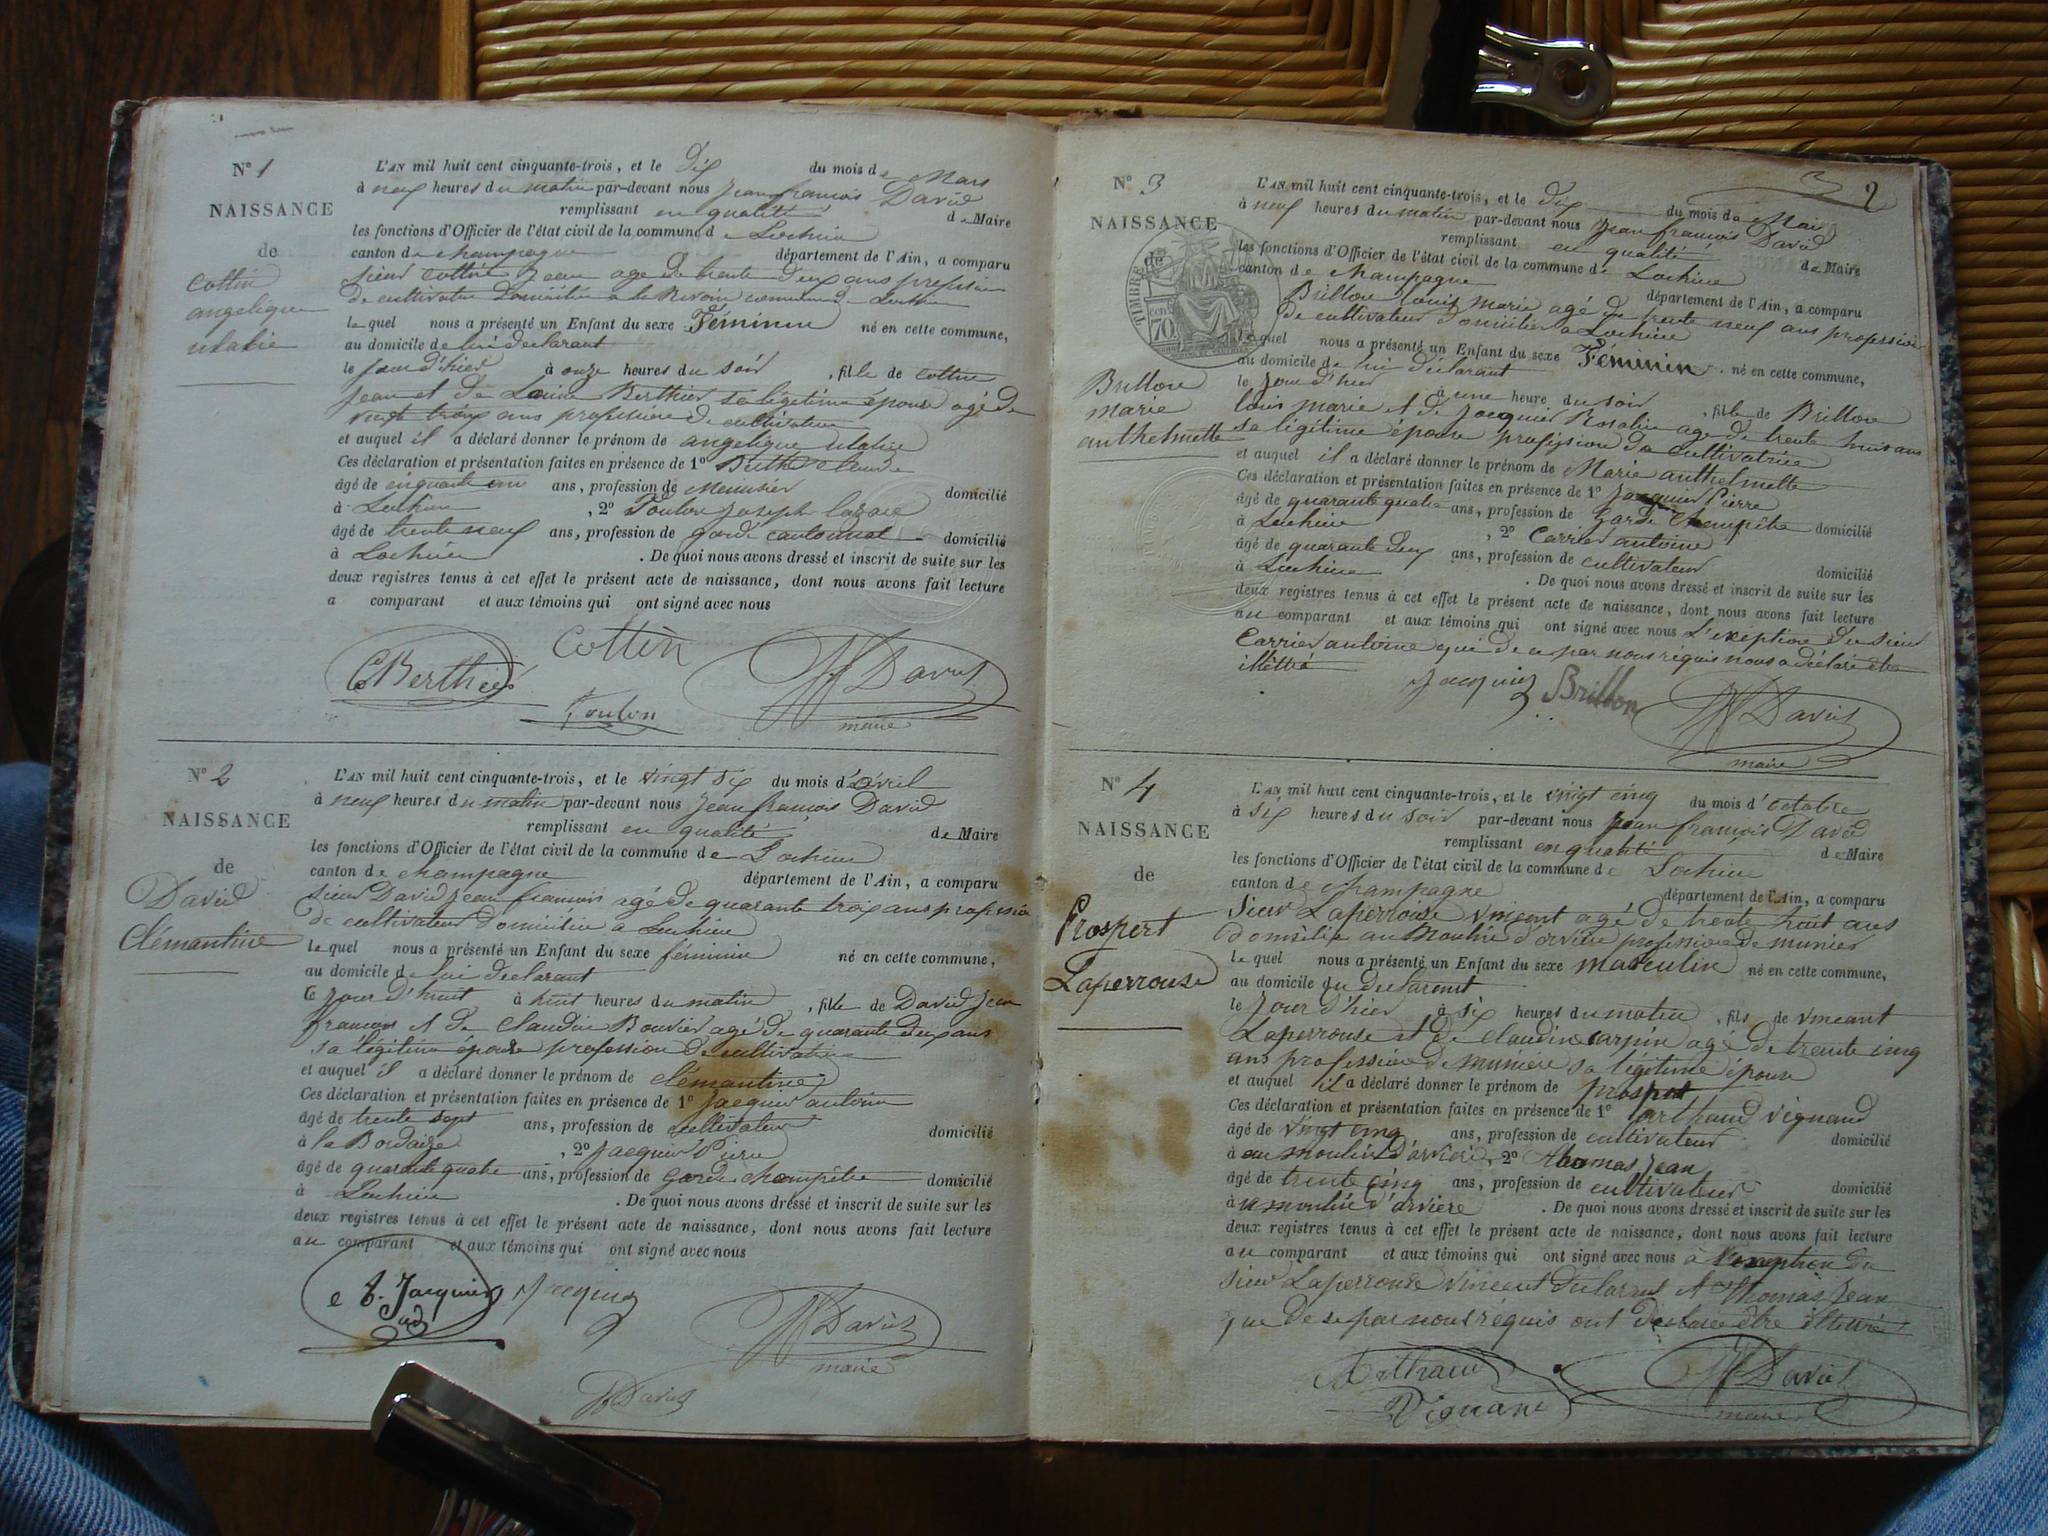 Nº 1
NAISSANCE
de
Cottin
angelique
L'AN mil huit cent cinquante-trois, et le Dix du mois de Mars
à neuf heures du matin par-devant nous Jean françois David
remplissant en qualité de Maire
les fonctions d'Officier de l'état civil de la commune de Lochieu
canton de champagne département de l'Ain, a comparu
sieur Cottin Jean age de trente deux ans profession
de cultivateur Domicilié commune de Lochieu
lequel nous a présenté un Enfant du sexe Féminin né en cette commune,
au domicile de lui declarant
le jour d'hier à onze heures du soir , fille de Cottin
Jean et de Louise Berthier sa légitime épouse agé de
vingt trois ans profession de cultivateur
et auquel il a déclaré donner le prénom de angelique
Ces déclaration et présentation faites en présence de 1º
âgé de cinquante un ans, profession de Menuisier domicilié
à Lochieu , 2º Toulon Joseph
âgé de trente neuf ans, profession de garde cantonnal domicilié
à Lochieu . De quoi nous avons dressé et inscrit de suite sur les
deux registres tenus à cet effet le présent acte de naissance, dont nous avons fait lecture
a comparant et aux témoins qui ont signé avec nous
Cottin
CBerthier
Toulon
David
maire
Nº 2
NAISSANCE
de
David
Clémantine
L'AN mil huit cent cinquante-trois, et le vingt six du mois d'avril
à neuf heures du matin par-devant nous Jean françois David
remplissant en qualité de Maire
les fonctions d'Officier de l'état civil de la commune de Lochieu
canton de champagne département de l'Ain, a comparu
sieur David Jean francois agé de quarante trois ans profession
de cultivateur domicilié a Lochieu
lequel nous a présenté un Enfant du sexe féminin né en cette commune,
au domicile de lui declarant
le jour d'huit à huit heures du matin , fille de David Jean
francois et de Claudine Bouvier agé de quarante deux ans
sa légitime épouse profession de cultivatrice
et auquel il a déclaré donner le prénom de clémantine
Ces déclaration et présentation faites en présence de 1º Jacquier antoine
âgé de trente sept ans, profession de cultivateur domicilié
à la Bordaize , 2º Jacquier Pierre
âgé de quarante quatre ans, profession de Garde champêtre domicilié
à Lochieu . De quoi nous avons dressé et inscrit de suite sur les
deux registres tenus à cet effet le présent acte de naissance, dont nous avons fait lecture
au comparant et aux témoins qui ont signé avec nous
Jacquier Jacquier
David
maire
David
2
Nº 3
NAISSANCE
de
TIMBRE
70
Brillon
marie
anthelmette
L'AN mil huit cent cinquante-trois, et le dix du mois de Mai
à neuf heures du matin par-devant nous Jean françois David
remplissant en qualité de Maire
les fonctions d'Officier de l'état civil de la commune de Lochieu
canton de champagne département de l'Ain, a comparu
Brillon louis marie agé de trente neuf ans profession
de cultivateur domicilié a Lochieu
lequel nous a présenté un Enfant du sexe Féminin né en cette commune,
au domicile de lui déclarant
le jour d'hier à une heure du soir , fille de Brillon
louis marie et de Jacquier Rosalie age de trente huit ans
sa légitime épouse profession de cultivatrice
et auquel il a déclaré donner le prénom de Marie anthelmette
Ces déclaration et présentation faites en présence de 1º Jacquier Pierre
âgé de quarante quatre ans, profession de Garde Champêtre domicilié
à Lochieu , 2º Carrier antoine
âgé de quarante deux ans, profession de cultivateur domicilié
à Lochieu . De quoi nous avons dressé et inscrit de suite sur les
deux registres tenus à cet effet le présent acte de naissance, dont nous avons fait lecture
au comparant et aux témoins qui ont signé avec nous L'exeption du sieur
Carrier antoine qui de ce par nous réquis nous a déclaré être
illittré
Jacquier Brillon
David
maire
Nº 4
NAISSANCE
de
Prospert
Laperrouse
L'AN mil huit cent cinquante-trois, et le vingt cinq du mois d'octobre
à six heures du soir par-devant nous Jean françois David
remplissant en qualité de Maire
les fonctions d'Officier de l'état civil de la commune de Lochieu
canton de champagne département de l'Ain, a comparu
Sieur Laperrouse vincent agé de trente huit ans
domicilié au Moulin d'arvière profession de munier
lequel nous a présenté un Enfant du sexe masculin né en cette commune,
au domicile du declarant
le Jour d'hier à six heures du matin , fils de vincent
Laperrouse et de claudine carpin agé de trente cinq
ans profession de muniere sa légitime épouse
et auquel il a déclaré donner le prénom de prospert
Ces déclaration et présentation faites en présence de 1º arthaud vignand
âgé de vingt cinq ans, profession de cultivateur domicilié
à au moulin d'arviere, 2º thomas Jean
âgé de trente cinq ans, profession de cultivateur domicilié
à u moulin d'arviere . De quoi nous avons dressé et inscrit de suite sur les
deux registres tenus à cet effet le présent acte de naissance, dont nous avons fait lecture
au comparant et aux témoins qui ont signé avec nous à l'exeption du
sieur Laperrouse vincent declarant et thomas Jean
que de se par nous réquis ont declare être illeuré
Arthaud
Vignand
David
maire